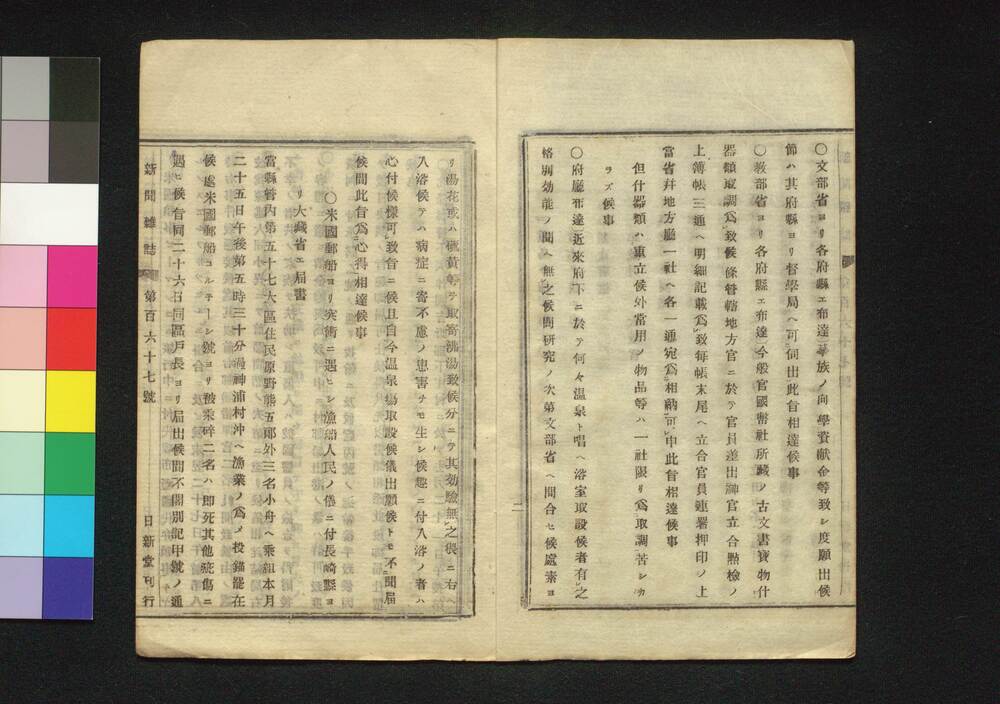 〇文部省ヨリ各府縣エ布達華族ノ向學資献金等致シ度願出候
節ハ其府縣ヨリ督學局ヘ可伺出此旨相達候事
〇敎部省ヨリ各府縣エ布達今般官國幣社所藏ノ古文書寶物什
器類取調爲致候條管轄地方官ニ於テ官員差出神官立合點檢ノ
上簿帳三通ヘ明細記載爲致每帳末尾ヘ立合官員連署押印ノ上
當省幷地方廳一社ヘ各一通宛爲相納可申此旨相達候事
但什器類ハ重立候外常用ノ物品等ハ一社限リ爲取調苦シカ
ラズ候事
〇府廳布達近來府下ニ於テ何々温泉ト唱ヘ浴室取設候者有之
格別効能ノ聞ヘ無之候間研究ノ次第文部省ヘ問合セ候處素ヨ
リ湯花或ハ硫黄等ヲ取寄沸湯致候分ニテ其効驗無之不已右ヘ
入浴候テハ病症ニ寄不慮ノ患害ヲモ生シ候趣ニ付入浴ノ者ハ
心付候樣可致旨ニ候且自今温泉場取設候儀出願候トモ不聞届
候間此旨爲心得相達候事
〇米國郵船ヨリ突衝ニ遇ヒシ漁船人民ノ儀ニ付長崎縣ヨ
リ大藏省エ届書
當縣管内第五十七大區住民原野熊五郎外三名小舟ヘ乘組本月
二十五日午後第五時三十分過神浦村沖ヘ漁業ノ爲メ投錨罷在
候處米國郵船コルテーシ號ヨリ被乘碎二名ハ即死其他疵傷ニ
遇ヒ候旨同二十六日同區戸長ヨリ届出候間不閣別記甲號ノ通
新聞雜誌 第百六十七號 日新堂刊行
二